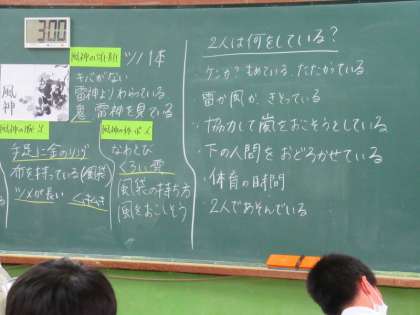 3:00
風神の
ツノ1本
キバがない
雷神よりわらっている
鬼 雷神を見ている
風神
風神の
手足に金のリング
布を持っている(風袋)
ツメが長い
なわとび
くろい雲
風袋の持ち方
風をおこしそう
2人は何をしている?
・ケンカ? もめている、たたかっている
・雷か風か、きそっている
・協力して嵐をおこそうとしている
・下の人間をおどろかせている
・体育の時間
・2人であそんでいる